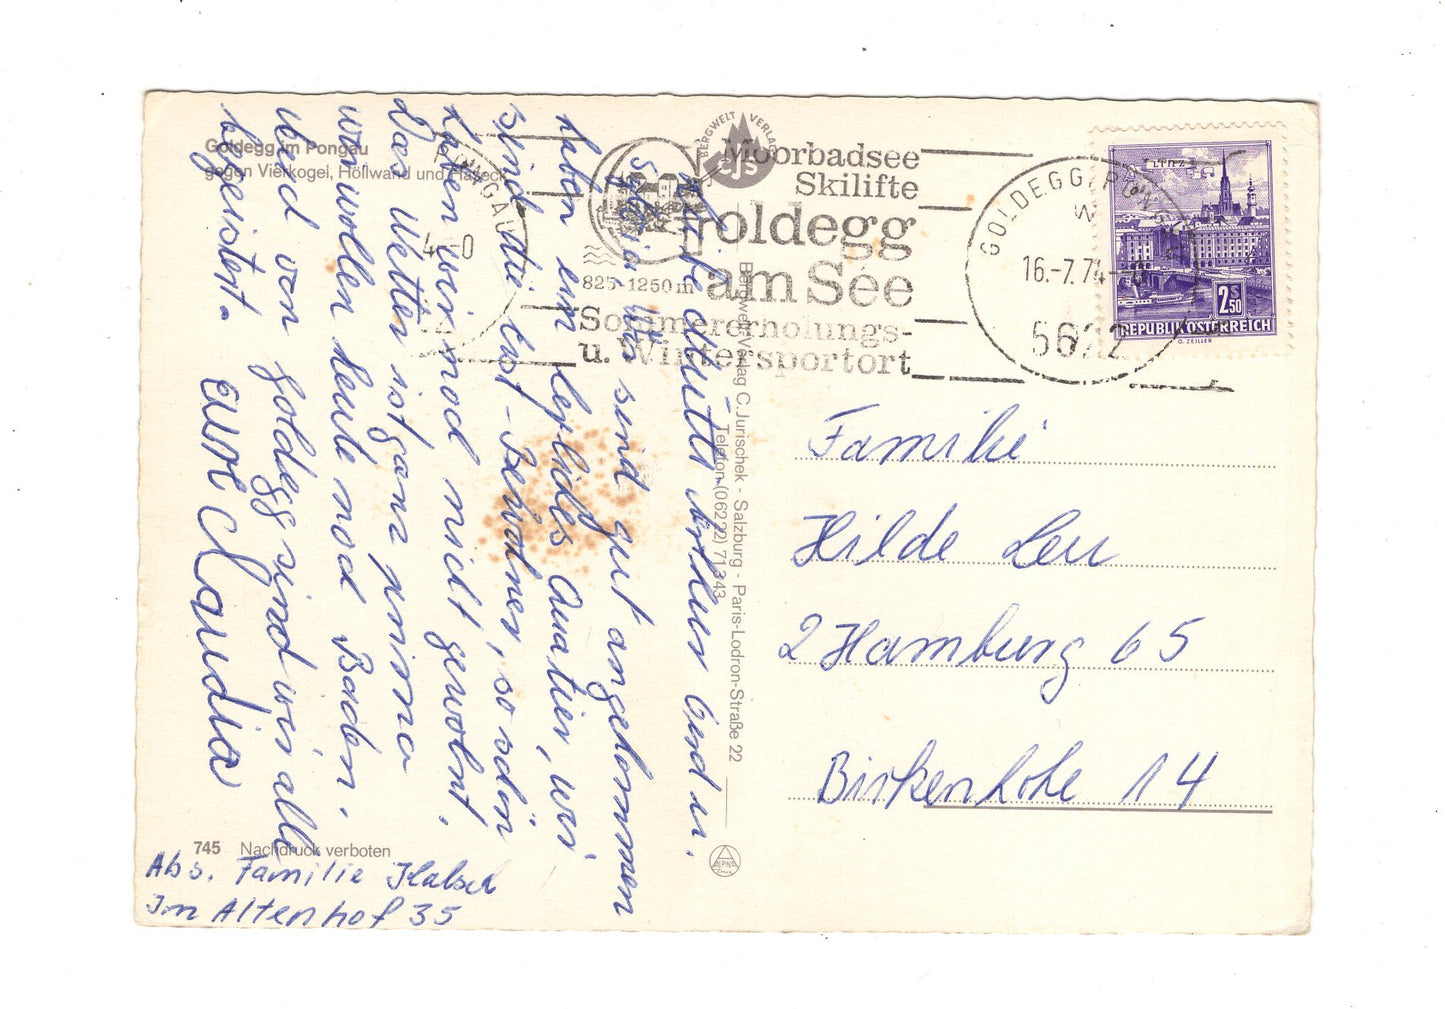 Goldegg im Pongau
gegen Vierkogel, Höllwand und Haßeck
BERGWELT VERLAG
CJS
Moorbadsee
Skilifte
Goldegg
am See
825-1250 m
Sommererholungs-
u. Wintersportort
GOLDEGG, PONGAU
16.-7.74
5622
LINZ
2 S 50
REPUBLIK ÖSTERREICH
O. ZEILLER
Liebe Mutti, Arthur und
Silvia. Wir sind gut angekommen
haben ein herrliches Quatier, wir
sind die erst-Bewohner, so schön
haben wir noch nicht gewohnt.
Das Wetter ist ganz prima
wir wollen heute noch Baden.
und von Goldegg sind wir alle
begeistert.
eure Claudia
Bergwelt-Verlag C. Jurischek - Salzburg - Paris-Lodron-Straße 22
Telefon (06222) 71343
Familie
Hilde Leu
2 Hamburg 65
Birkenhöhe 14
745 Nachdruck verboten
ALPINA
Abs. Familie
Im Altenhof 35